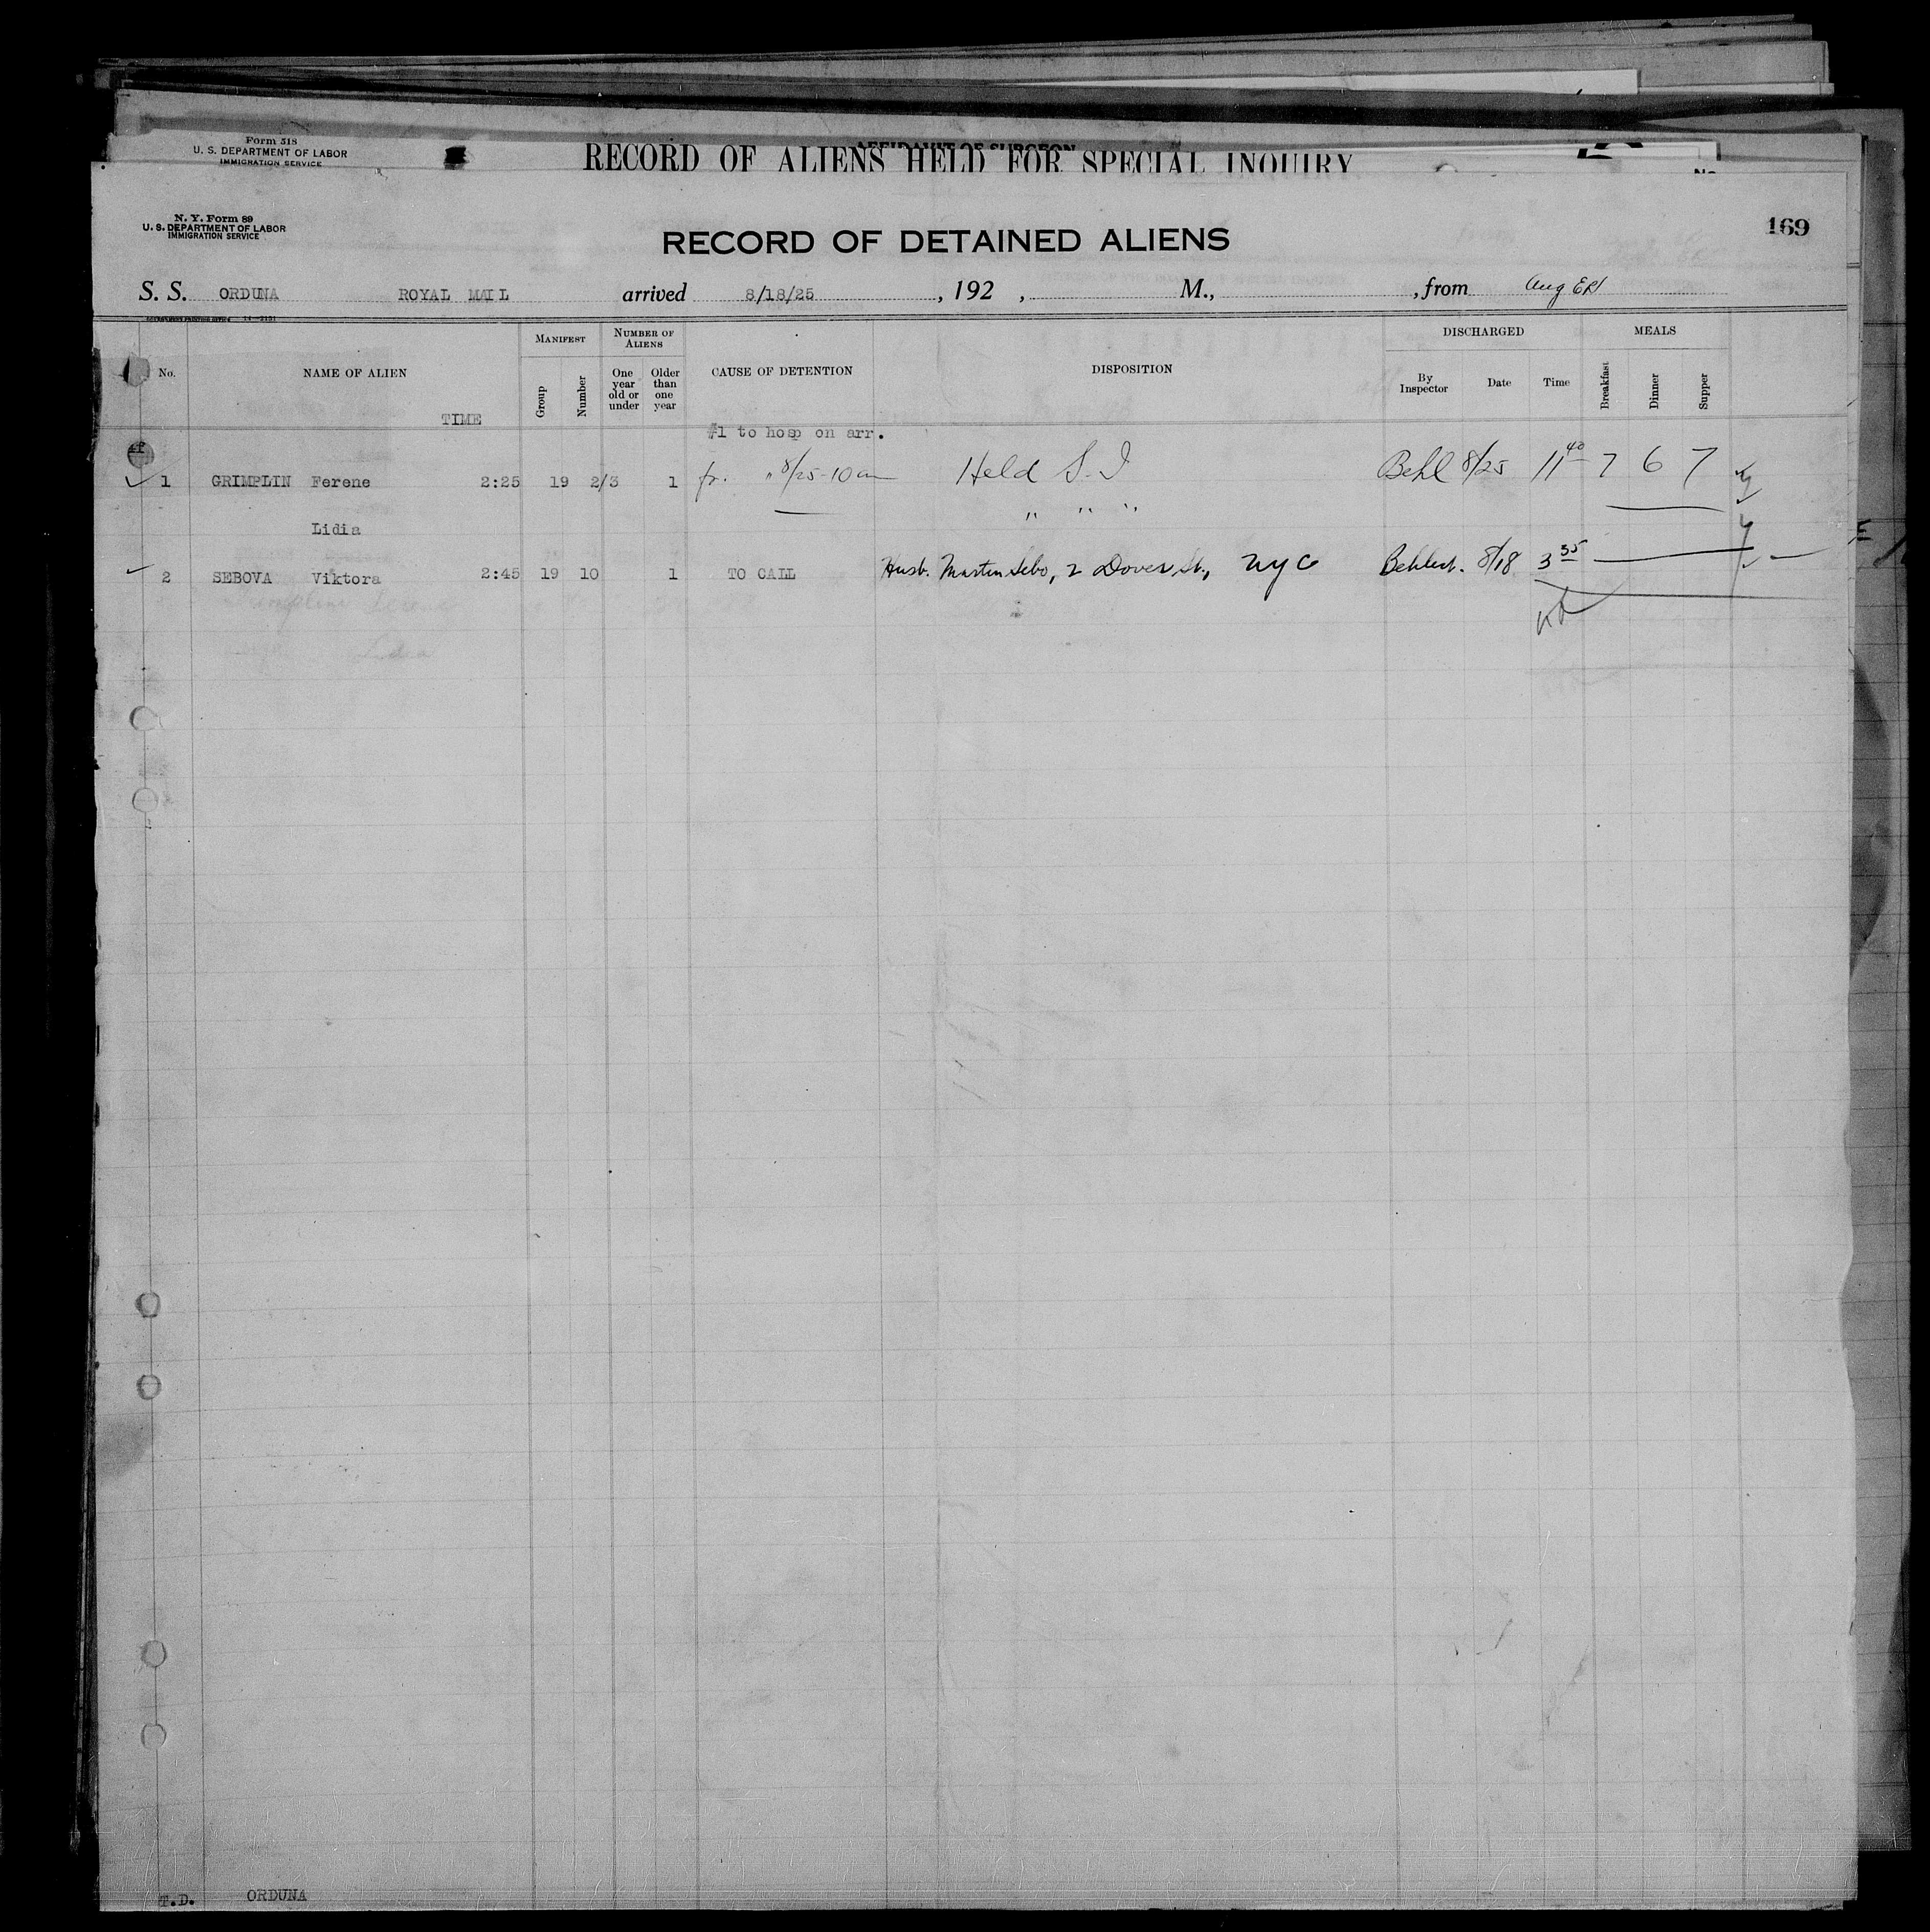 Form 518
U. S. DEPARTMENT OF LABOR
IMMIGRATION SERVICE
AFFIDAVIT OF SURGEON
RECORD OF ALIENS HELD FOR SPECIAL INQUIRY
No.
N. Y. Form 89
U. S. DEPARTMENT OF LABOR
IMMIGRATION SERVICE
RECORD OF DETAINED ALIENS
169
S. S. ORDUNA ROYAL MAIL arrived 8/18/25, 192 , M., , from
No. NAME OF ALIEN TIME MANIFEST Group Number NUMBER OF ALIENS One year old or under Older than one year CAUSE OF DETENTION DISPOSITION DISCHARGED By Inspector Date Time MEALS Breakfast Dinner Supper
#1 to hosp on arr.
1 GRIMPLIN Ferene 2:25 19 2/3 1 fr. " 8/25-10 am Held S. I Behl 8/25 11 40 7 6 7
Lidia " " "
2 SEBOVA Viktora 2:45 19 10 1 TO CALL Husb. Martin Sebo, 2 Dover St., NYC 8/18 3 35
T.D. ORDUNA